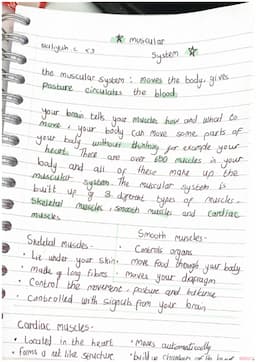 muscular
system
the muscular system: moves the body, gives
posture circulates the blood.
your brain tells your muscles how and what to
move, your body can move some parts of
your body without thinking for example your
heart. There are over 600 muscles in your
body and all of these make up the
muscular system. The muscular system is
built up of 3 diferent types of muscles.
Skeletal muscles, smooth muscles and cardiac
muscles.
Skeletal muscles-
• Lie under your skin
• made of long fibres
• Control the movement, posture and balance
• Controlled with signals from your brain
Smooth muscles-
• Controls organs
• move food through your body
• moves your diaphragm
Cardiac muscles-
• Located in the heart
• Forms a net like structure
• Moves automatically